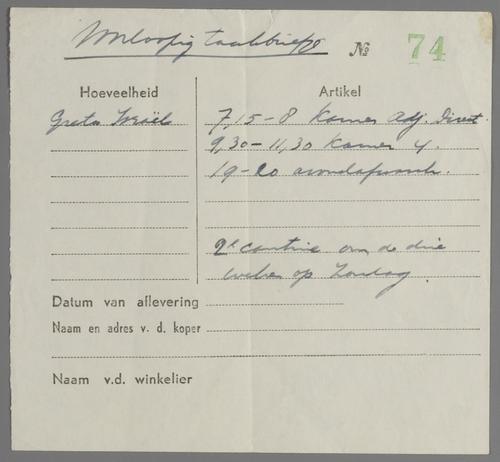 Voorloopig taakbriefje No 74
Hoeveelheid Artikel
Greta Israëls 7,15-8 Kamer Adj. Direct.
9,30-11,30 Kamer 4.
19-20 avondafwasch.
2e cantine om de drie
weken op Zondag.
Datum van aflevering
Naam en adres v. d. koper
Naam v.d. winkelier